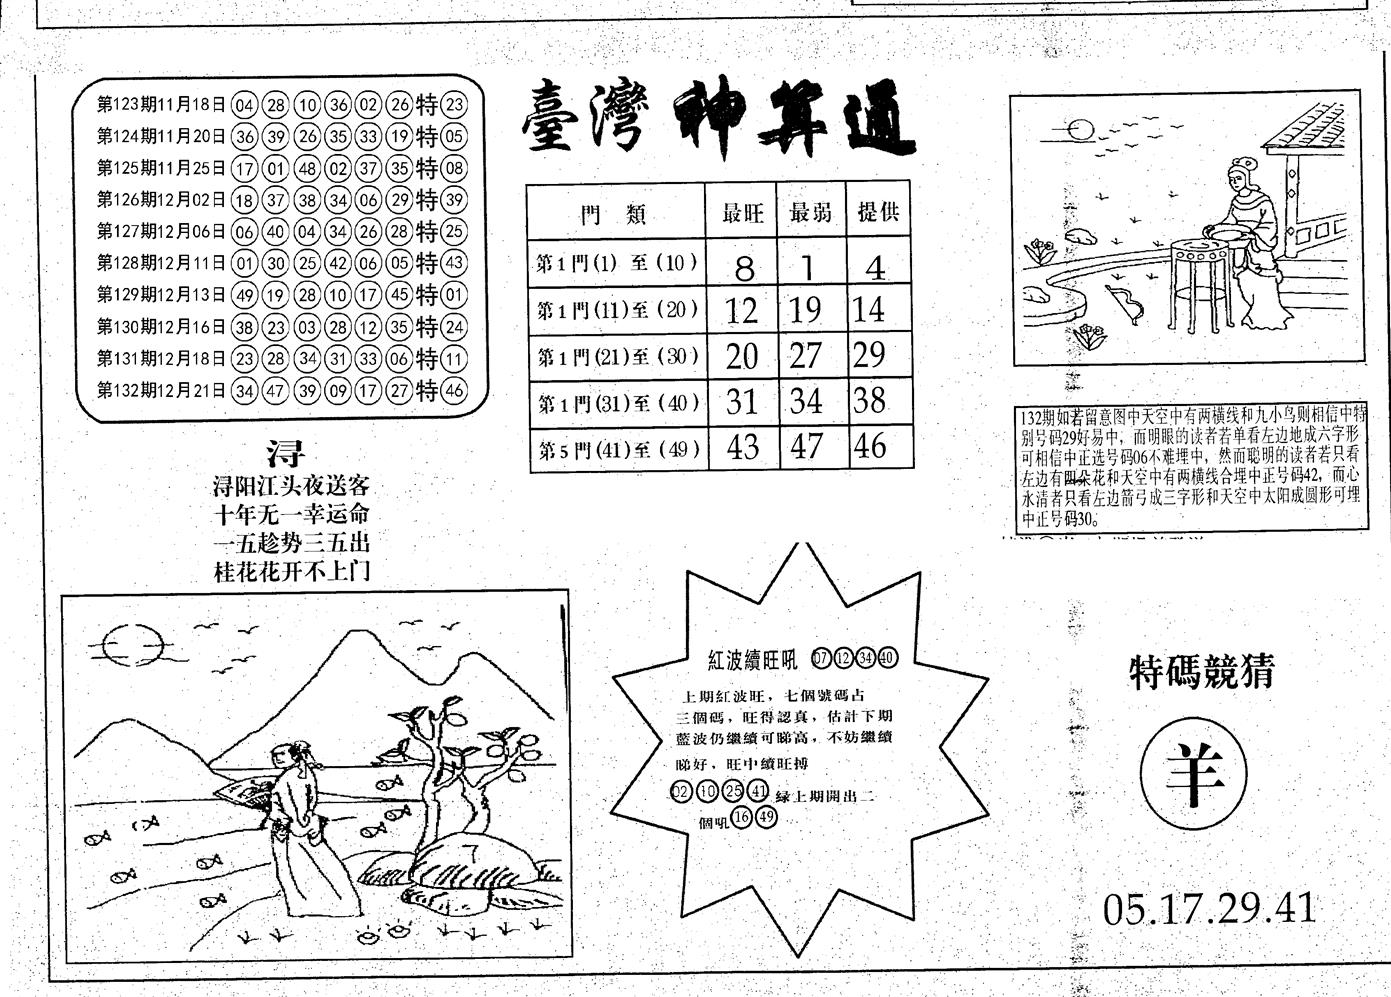 第123期11月18日 04 28 10 36 02 26 特 23
第124期11月20日 36 39 26 35 33 19 特 05
第125期11月25日 17 01 48 02 37 35 特 08
第126期12月02日 18 37 38 34 06 29 特 39
第127期12月06日 06 40 04 34 26 28 特 25
第128期12月11日 01 30 25 42 06 05 特 43
第129期12月13日 49 19 28 10 17 45 特 01
第130期12月16日 38 23 03 28 12 35 特 24
第131期12月18日 23 28 34 31 33 06 特 11
第132期12月21日 34 47 39 09 17 27 特 46
浔
浔阳江头夜送客
十年无一幸运命
一五趁势三五出
桂花花开不上门
7
臺灣神算通
門類 最旺 最弱 提供
第1門(1)至(10) 8 1 4
第1門(11)至(20) 12 19 14
第1門(21)至(30) 20 27 29
第1門(31)至(40) 31 34 38
第5門(41)至(49) 43 47 46
紅波續旺吼 07 12 34 40
上期紅波旺，七個號碼占
三個碼，旺得認真，估計下期
藍波仍繼續可睇高，不妨繼續
睇好，旺中續旺搏
02 10 25 41 緑上期開出二
個吼 16 49
132期如若留意图中天空中有两横线和九小鸟则相信中特
别号码29好易中，而明眼的读者若单看左边地成六字形
可相信中正选号码06不难埋中，然而聪明的读者若只看
左边有四朵花和天空中有两横线合埋中正号码42，而心
水清者只看左边箭弓成三字形和天空中太阳成圆形可埋
中正号码30。
特碼競猜
羊
05.17.29.41